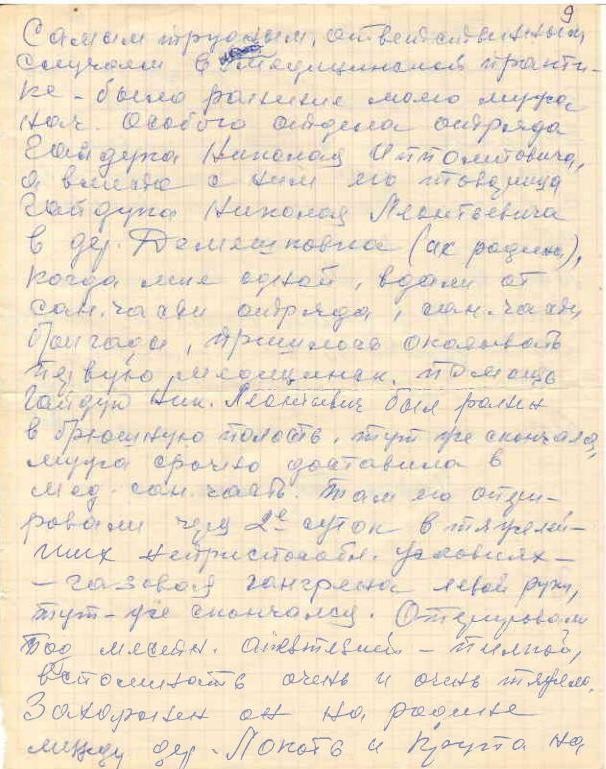 9
Самым трудным, ответственным
случаем в медицинской практи-
ке - было ранение моего мужа
нач. Особого отдела отряда
Гайдука Николая Ипполитовича,
а вместе с ним его
Гайдука Николая Леонтьевича
в дер. Демешковка (их родина),
когда мне одной, вдали от
сан. части отряда, сан. части
бригады, пришлось оказывать
первую медицинск. помощь
Гайдук Ник. Леонтьевич был ранен
в брюшную полость, тут же скончался,
мужа срочно доставила в
мед. сан. часть. Там его опери-
ровали через 2е суток в тяжелей-
ших неприспособл. условиях -
- газовая гангрена левой руки,
тут-же скончался. Оперировали
под местн. анестезией - пилкой,
вспоминать очень и очень тяжело.
Захоронен он на родине
между дер. Локоть и Крупа на